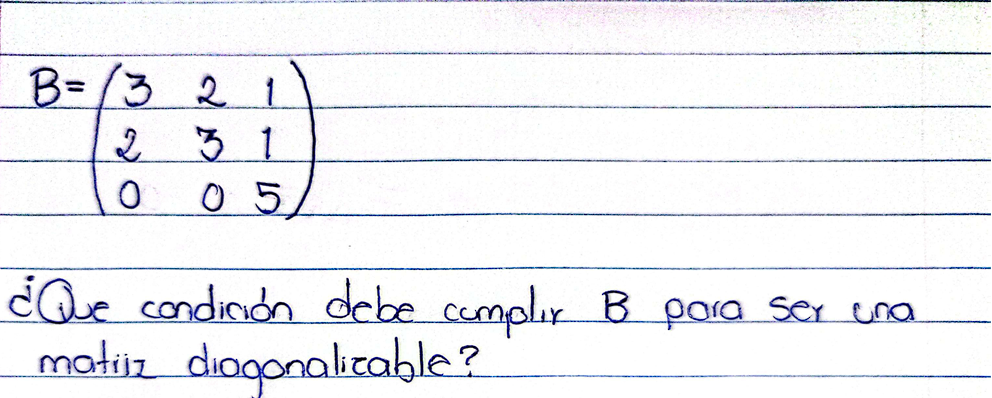 B= (3 2 1
2 3 1
0 0 5)
¿Que condición debe cumplir B para ser una
matriz diagonalizable?